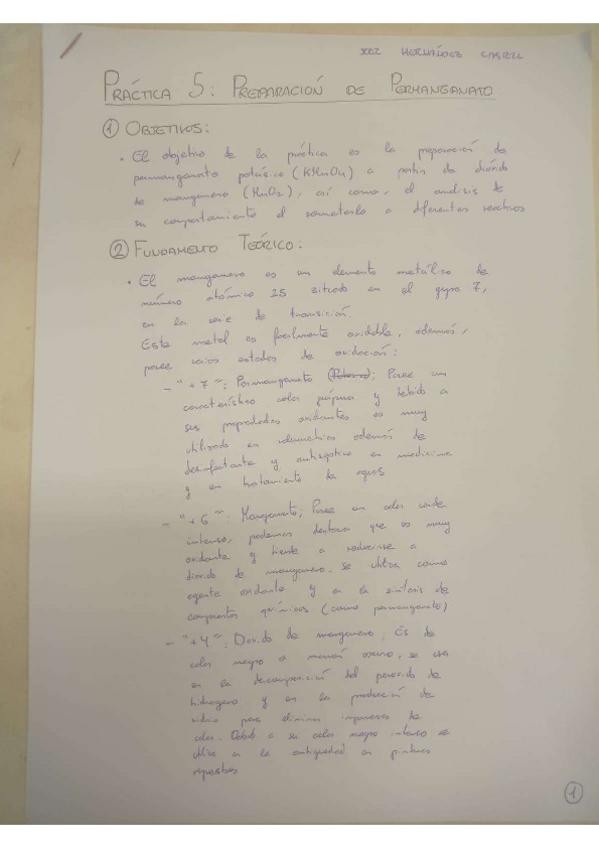 HERNÁNDEZ
PRÁCTICA 5: PREPARACIÓN DE PERMANGANATO
① OBJETIVOS:
• El objetivo de la práctica es la preparación de
permanganato potásico (KMnO4) a partir de dióxido
de manganeso (MnO2), así como, el análisis de
su comportamiento al someterlo a diferentes reactivos
② FUNDAMENTO TEÓRICO:
• El manganeso es un elemento metálico de
número atómico 25 situado en el grupo 7,
en la serie de transición.
Este metal es facilmente oxidable, además,
posee varios estados de oxidación:
- "+7": Permanganato; Posee un
característico color púrpura y debido a
sus propiedades oxidantes es muy
utilizado en volumetrias además de
desinfectante y antiséptico en medicina
y en tratamiento de aguas
- "+6": Manganato; Posee un color verde
intenso, podemos destacar que es muy
oxidante y tiende a reducirse a
dioxido de manganeso. Se utiliza como
agente oxidante y en la sintesis de
compuestos químicos (como permanganato)
- "+4": Dioxido de manganeso; Es de
color negro o marrón oscuro, se usa
en la descomposición del peroxido de
hidrogeno y en la producción de
vidrio para eliminar impurezas de
color. Debido a su color negro intenso se
utiliza en la antiguedad en pinturas
rupestres
①